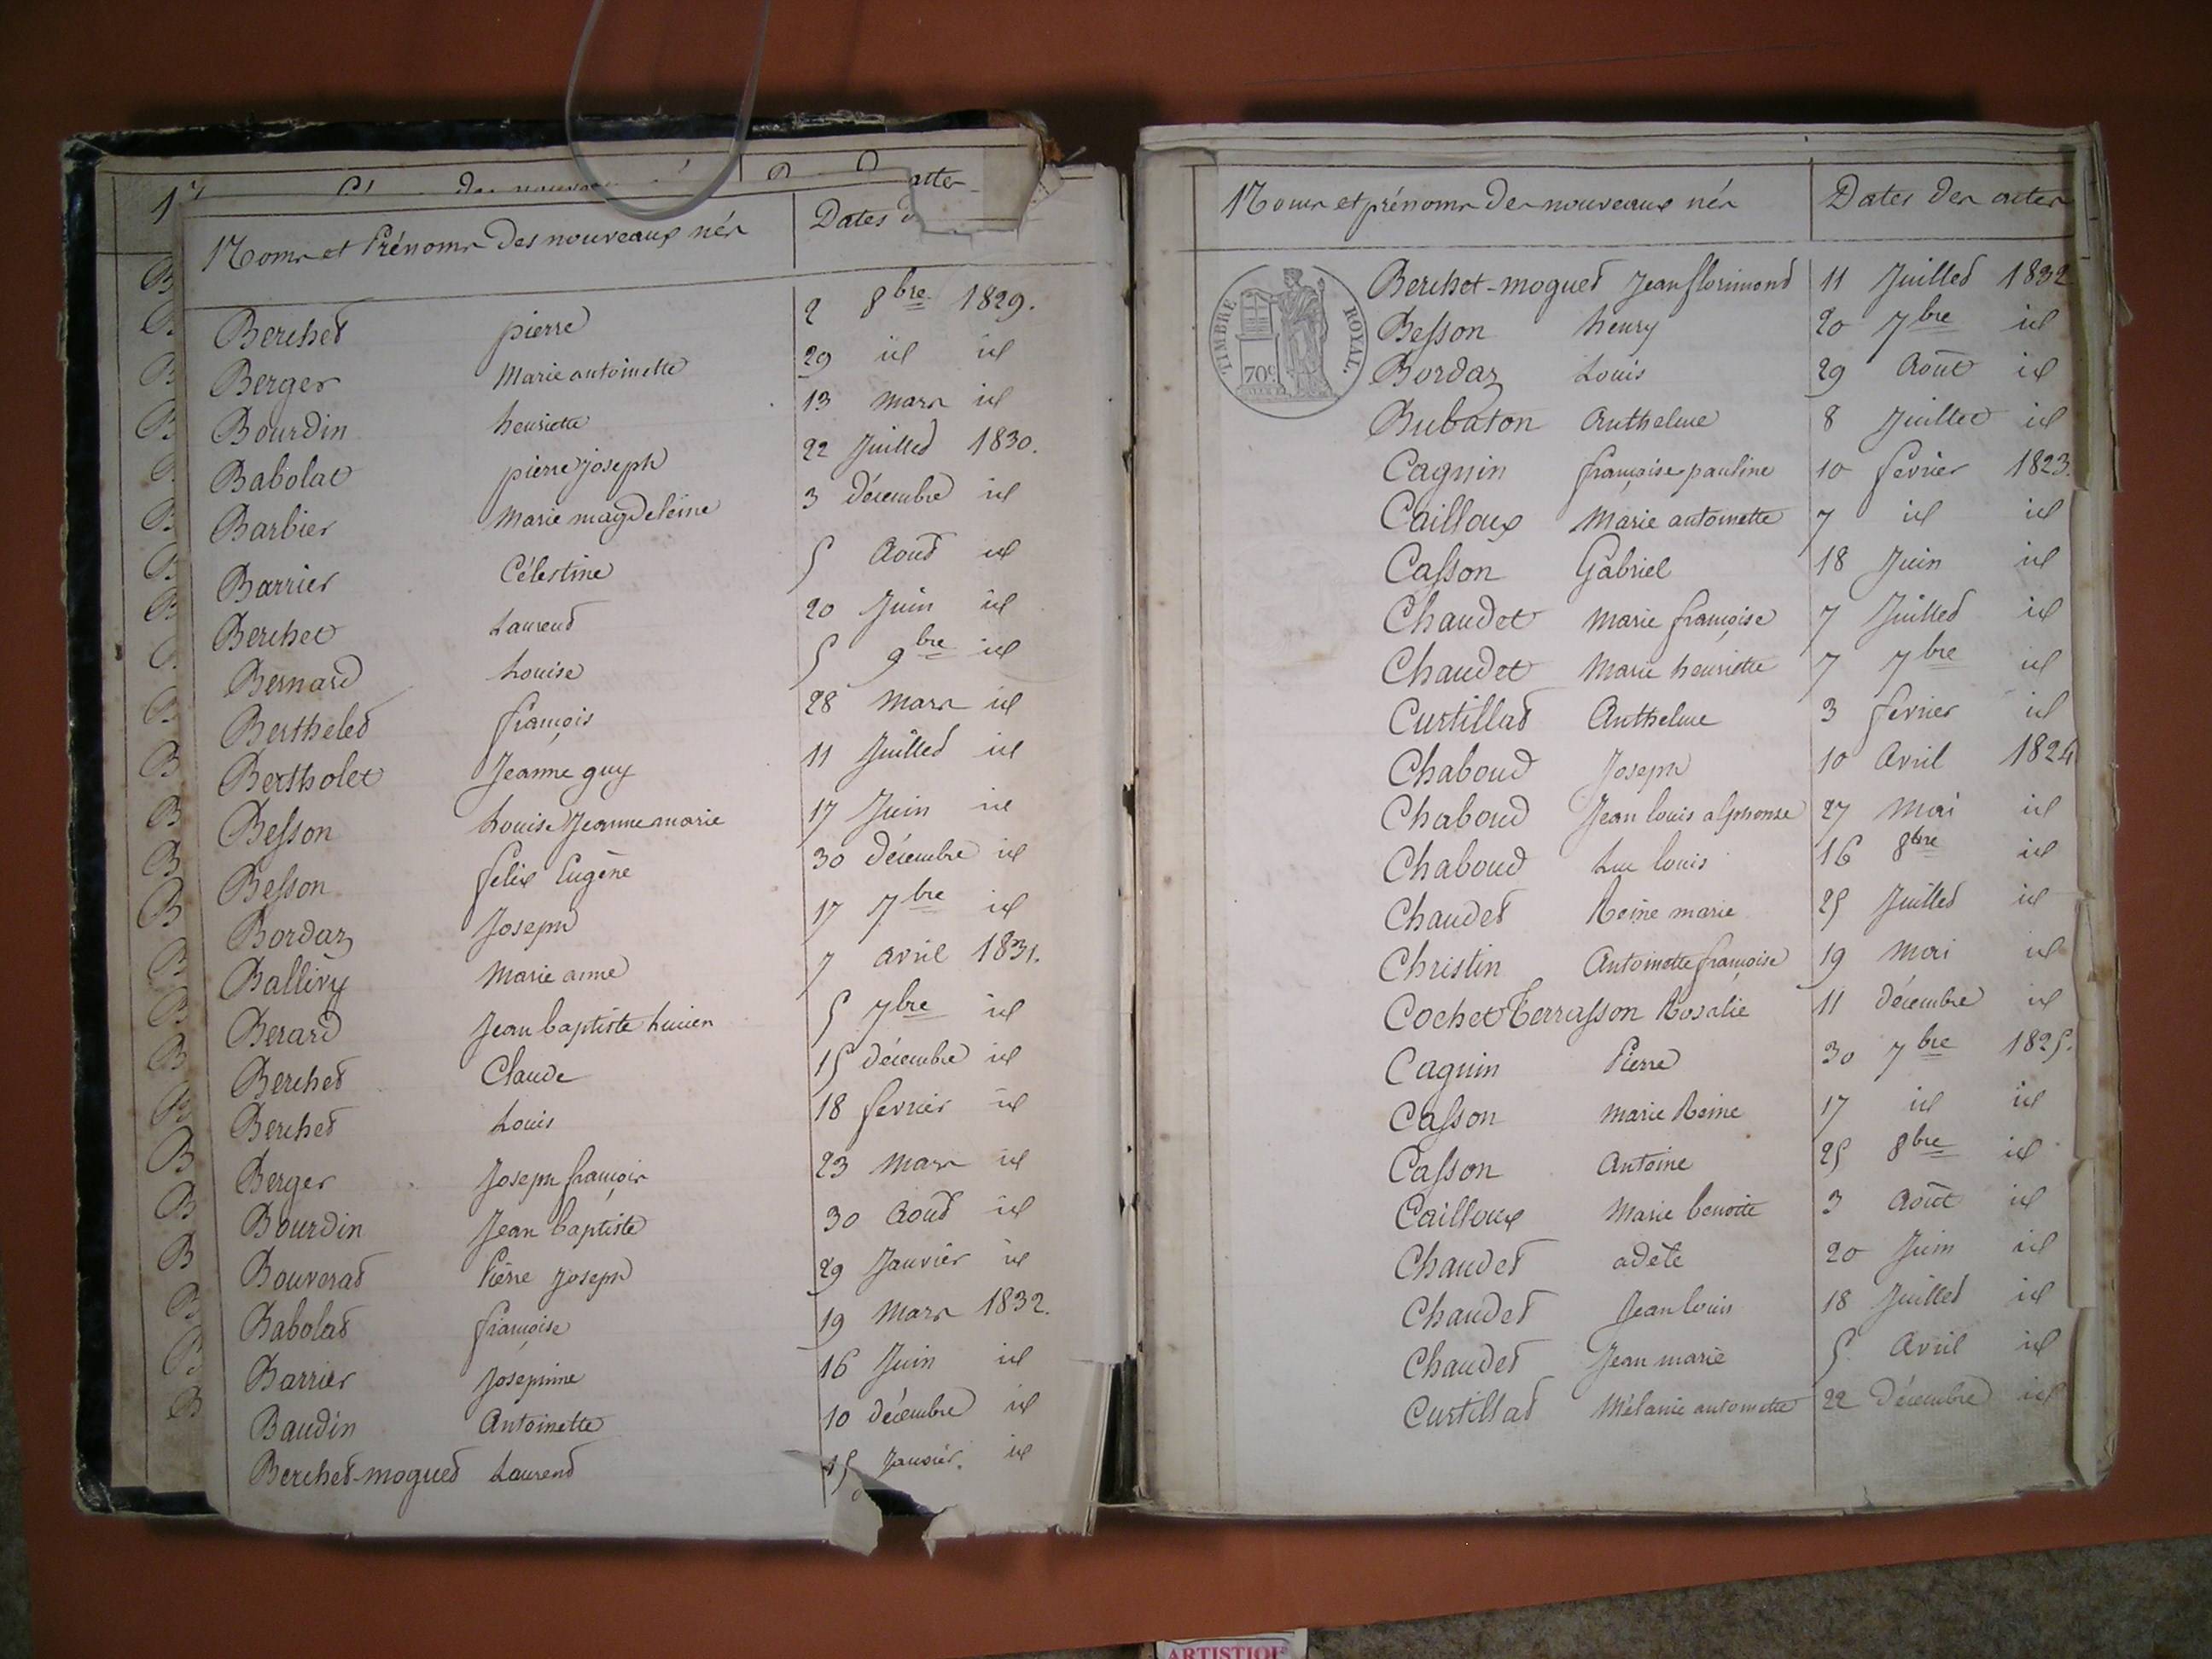 atter
Noms et Prénoms des nouveaux nés Dates d
Berchet pierre 2 8bre 1829.
Berger Marie antoinette 29 id id
Bourdin henriette 13 mars id
Babolat pierre joseph 22 Juillet 1830.
Barbier Marie magdeleine 3 décembre id
Barrier Célestine 5 Aout id
Berchet Laurent 20 Juin id
Bernard Louise 5 9bre id
Berthelet françois 28 mars id
Bertholet Jeanne guy 11 Juillet id
Besson Louise Jeanne marie 17 Juin id
Besson felix Eugène 30 décembre id
Bordaz Joseph 17 7bre id
Ballivy Marie anne 7 avril 1831.
Berard Jean baptiste Lucien 5 7bre id
Berchet Claude 15 décembre id
Berchet Louis 18 fevrier id
Berger Joseph françois 23 mars id
Bourdin Jean baptiste 30 Aout id
Bouverat Pierre Joseph 29 Janvier id
Babolat françoise 19 Mars 1832.
Barrier Josephine 16 Juin id
Baudin Antoinette 10 décembre id
Berchet-moguet Laurent 15 Janvier. id
Noms et prénoms des nouveaux nés Dates des actes
TIMBRE ROYAL.
70c
Berchet-moguet Jean florimond 11 Juillet 1832
Besson henry 20 7bre id
Bordaz Louis 29 Août id
Bubaton Anthelme 8 Juillet id
Cagnin françoise pauline 10 fevrier 1823.
Cailloux Marie antoinette 7 id id
Casson Gabriel 18 Juin id
Chaudet Marie françoise 7 Juillet id
Chaudet Marie henriette 7 7bre id
Curtillat Anthelme 3 fevrier id
Chaboud Joseph 10 Avril 1824
Chaboud Jean louis alphonse 27 Mai id
Chaboud Luc louis 16 8bre id
Chaudet Reine marie 25 Juillet id
Christin Antoinette françoise 19 Mai id
Cochet Terrasson Rosalie 11 décembre id
Cagnin Pierre 30 7bre 1825.
Casson Marie Reine 17 id id
Casson Antoine 25 8bre id
Cailloux Marie benoite 3 Août id
Chaudet adèle 20 Juin id
Chaudet Jean louis 18 Juillet id
Chaudet Jean marie 5 Avril id
Curtillat Mélanie antoinette 22 décembre id